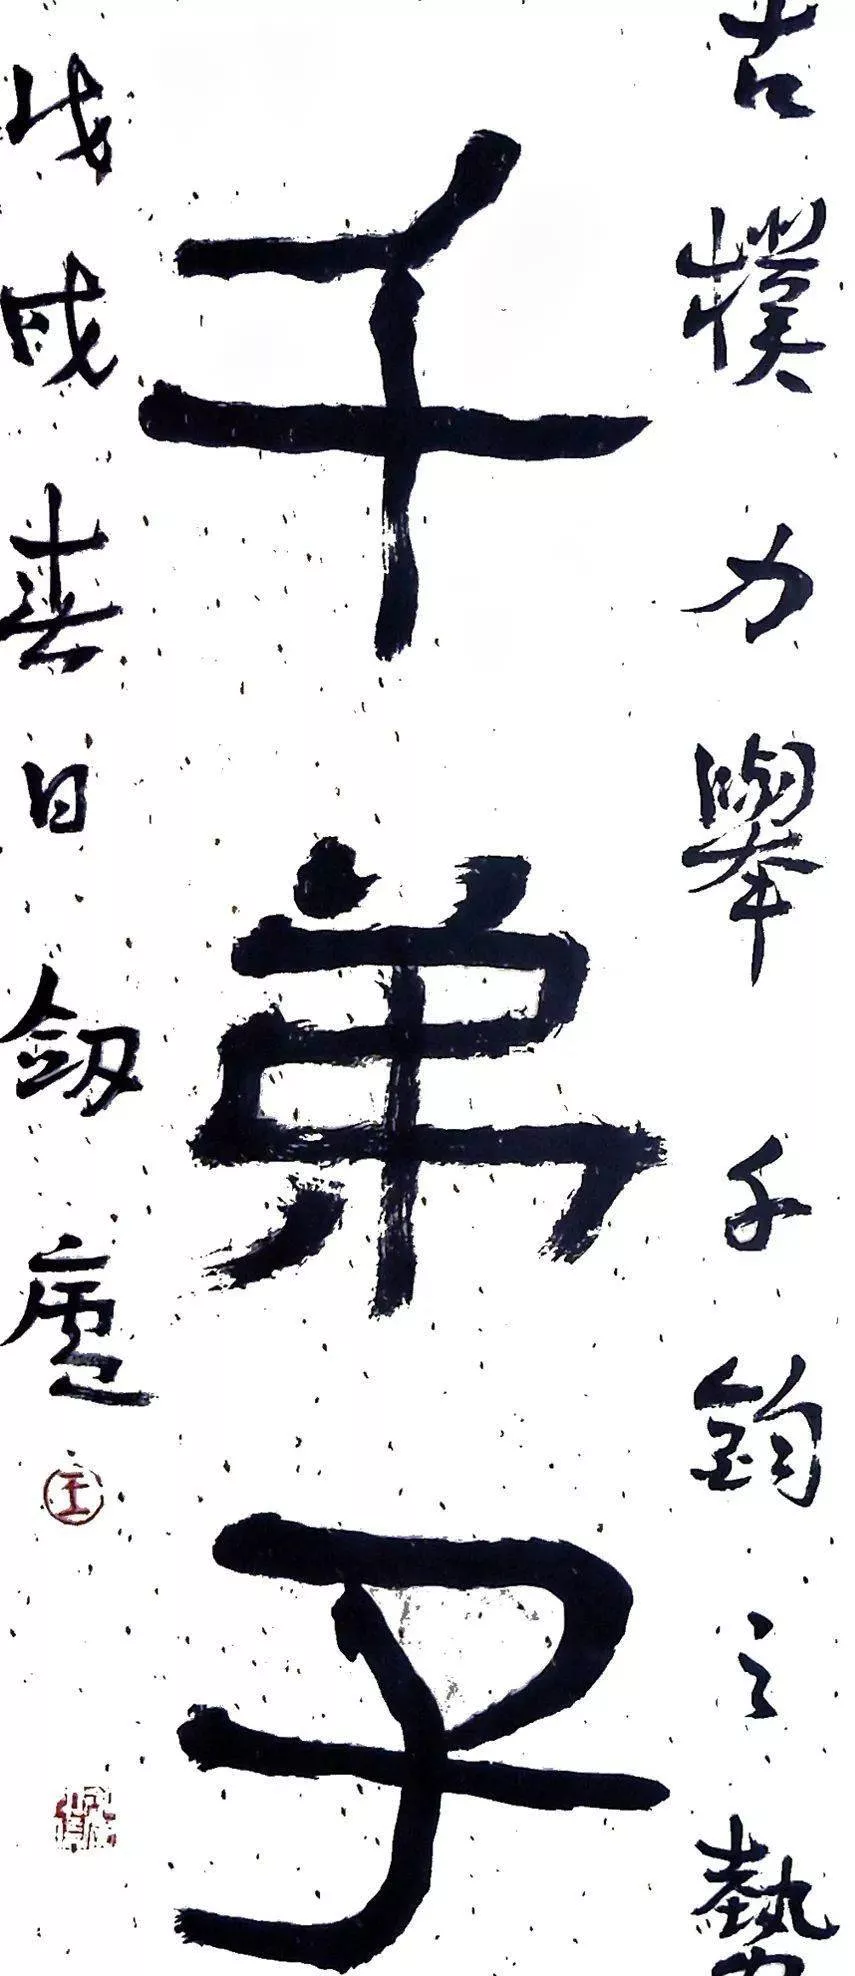 古樸力舉千鈞之勢
千弟子
戊戌春日劔廬
王